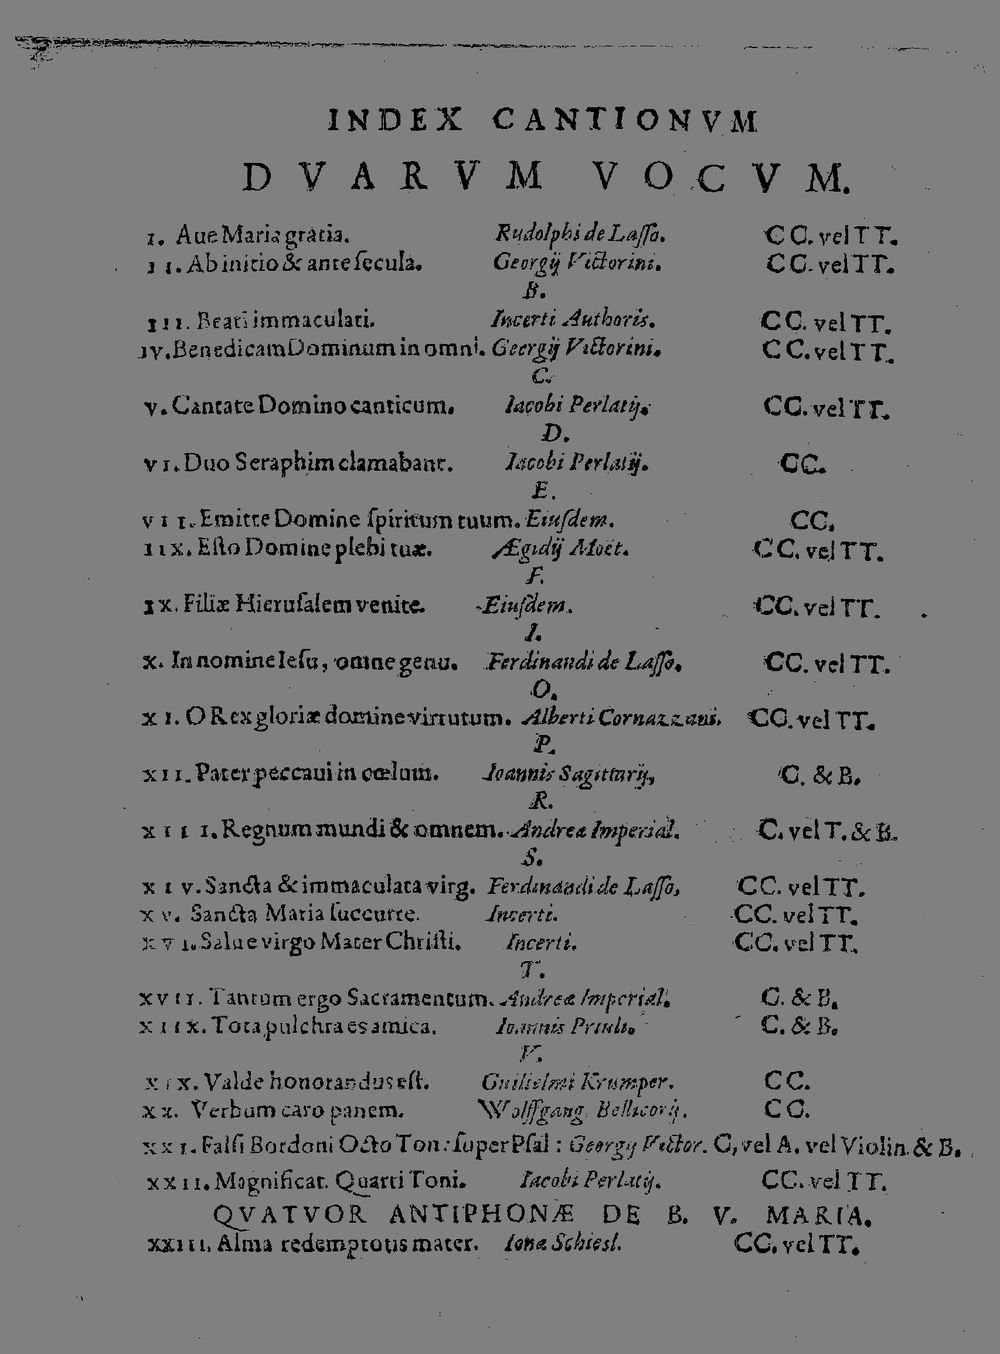 INDEX CANTIONVM
DVARVM VOCVM.
I. Aue Maria gratia. Rudolphi de Lasso. CC. vel TT.
II. Ab initio & ante secula. Georgij Victorini. CC. vel TT.
B.
III. Beati immaculati. Incerti Authoris. CC. vel TT.
IV. Benedicam Dominum in omni. Georgij Victorini. CC. vel TT.
C.
V. Cantate Domino canticum. Iacobi Perlatij. CC. vel TT.
D.
VI. Duo Seraphim clamabant. Iacobi Perlatij. CC.
E.
VII. Emitte Domine spiritum tuum. Eiusdem. CC.
IIX. Esto Domine plebi tuæ. Ægidij Moët. CC. vel TT.
F.
IX. Filiæ Hierusalem venite. Eiusdem. CC. vel TT.
I.
X. In nomine Iesu, omne genu. Ferdinandi de Lasso. CC. vel TT.
O.
XI. O Rex gloriæ domine virtutum. Alberti Cornazzani. CC. vel TT.
P.
XII. Pater peccaui in cœlum. Ioannis Sagittarij, C. & B.
R.
XIII. Regnum mundi & omnem. Andreæ Imperial. C. vel T. & B.
S.
XIV. Sancta & immaculata virg. Ferdinandi de Lasso, CC. vel TT.
XV. Sancta Maria succurre. Incerti. CC. vel TT.
XVI. Salue virgo Mater Christi. Incerti. CC. vel TT.
T.
XVII. Tantum ergo Sacramentum. Andreæ Imperial. C. & B.
XIIX. Tota pulchra es amica. Ioannis Priuli. C. & B.
V.
XIX. Valde honorandus est. Guilielmi Krumper. CC.
XX. Verbum caro panem. Wolffgang. Bellicorij. CC.
XXI. Falsi Bordoni Octo Ton: super Psal: Georgij Victor. C, vel A. vel Violin. & B.
XXII. Magnificat. Quarti Toni. Iacobi Perlatij. CC. vel TT.
QVATVOR ANTIPHONÆ DE B. V. MARIA.
XXIII. Alma redemptoris mater. Ionæ Schiesl. CC. vel TT.